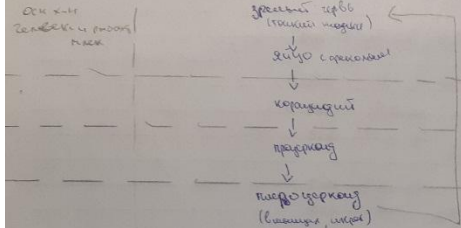 осн х-ин
человек и
млек
зрелый червь
(тонкий кишечн)
яйцо с
корацидий
процеркоид
плероцеркоид
(в мышцах, икра)